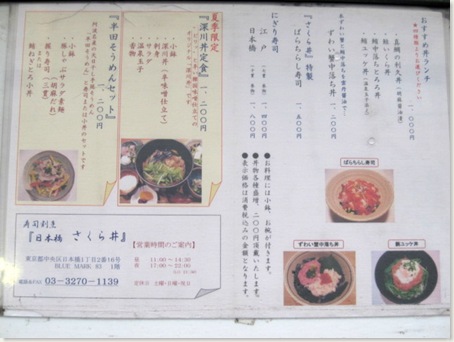 おすすめ丼ランチ
一、〇〇〇円
鮪いくら丼
鮪中落ち丼
鮪ユッケ丼
ずわい蟹中落ち丼
一、二〇〇円
『さくら井』特製
ばらちらし寿司
一、五〇〇円
にぎり寿司
江戸
一、四〇〇円
日本橋
一、八〇〇円
●お料理には小鉢、お椀が付きます。
●丼物各種大盛り、二〇〇円頂戴いたします。
●表示価格は消費税込みの金額となります。
ばらちらし寿司
ずわい蟹中落ち丼
鮪ユッケ丼
夏季限定
『深川丼定食』
一、二〇〇円
小鉢
深川丼
サラダ
温泉玉子
香物
『半田そうめんセット』
一、二〇〇円
小鉢
豚しゃぶサラダ素麺
(胡麻だれ)
握り寿司(三貫)
または
鮪ねぎとろ小丼
寿司割烹
『日本橋 さくら井』
【営業時間のご案内】
東京都中央区日本橋1丁目2番16号
BLUE MARK 83 1階
昼 11:00～14:30
夜 17:00～22:00
03-3270-1139
定休日 土曜・日曜・祝日